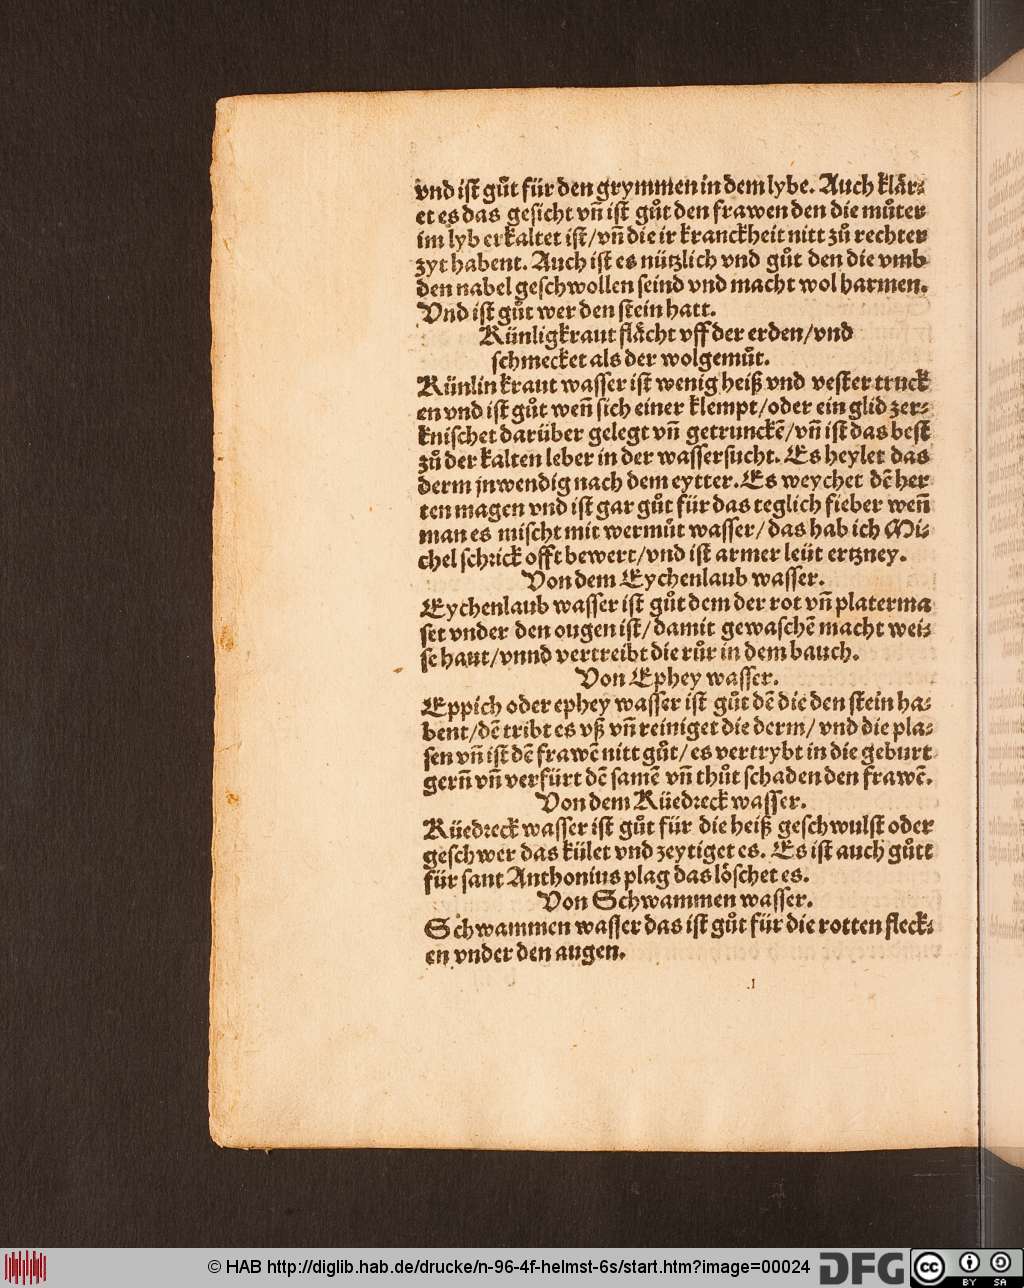 vnd ist gůt für den grymmen in dem lybe. Auch klär⸗
et es das gesicht vn̄ ist gůt den frawen den die můter
im lyb erkaltet ist/vn̄ die ir kranckheit nitt zů rechter
zyt habent. Auch ist es nützlich vnd gůt den die vmb
den nabel geschwollen seind vnd macht wol harmen.
Vnd ist gůt wer den stein hatt.
Künligkraut flächt vff der erden/vnd
schmecket als der wolgemůt.
Künlin kraut wasser ist wenig heiß vnd vester truck
en vnd ist gůt wen̄ sich einer klempt/oder ein glid zer⸗
knischet darüber gelegt vn̄ getrunckē/vn̄ ist das best
zů der kalten leber in der wassersucht. Es heylet das
derm jnwendig nach dem eytter. Es weychet dē her
ten magen vnd ist gar gůt für das teglich fieber wen̄
man es mischt mit wermůt wasser/das hab ich Mi⸗
chel schrick offt bewert/vnd ist armer leüt ertzney.
Von dem Eychenlaub wasser.
Eychenlaub wasser ist gůt dem der rot vn̄ platerma
set vnder den ougen ist/damit gewaschē macht wei⸗
se haut/vnnd vertreibt die růr in dem bauch.
Von Ephey wasser.
Eppich oder ephey wasser ist gůt dē die den stein ha⸗
bent/dē tribt es vß vn̄ reiniget die derm/vnd die pla⸗
sen vn̄ ist dē frawē nitt gůt/es vertrybt in die geburt
gern̄ vn̄ verfürt dē samē vn̄ thůt schaden den frawē.
Von dem Küedreck wasser.
Küedreck wasser ist gůt für die heiß geschwulst oder
geschwer das kület vnd zeytiget es. Es ist auch gůtt
für sant Anthonius plag das löschet es.
Von Schwammen wasser.
Schwammen wasser das ist gůt für die rotten fleck⸗
en vnder den augen.
© HAB http://diglib.hab.de/drucke/n-96-4f-helmst-6s/start.htm?image=00024
DFG
cc BY SA